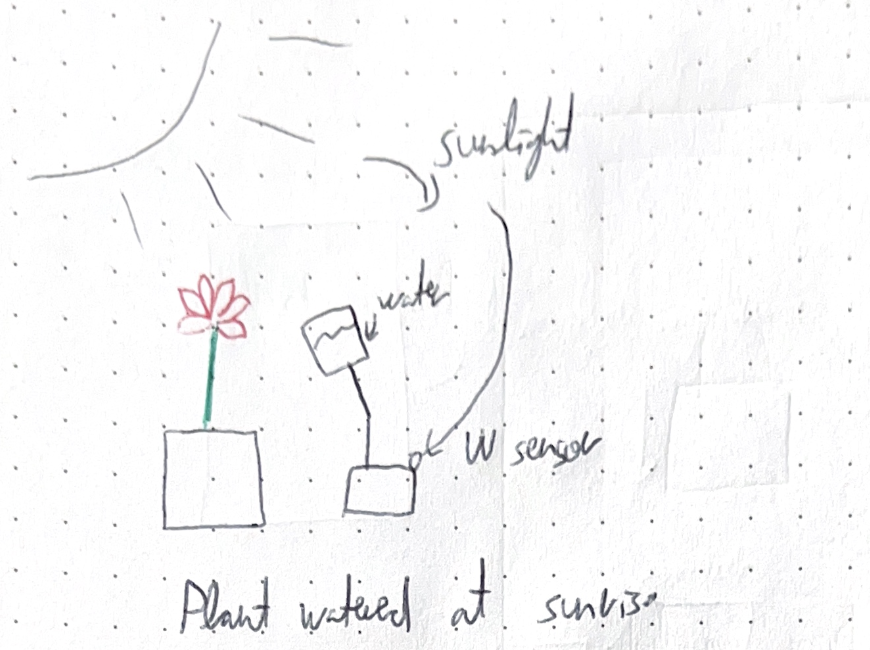 sunlight
water
UV sensor
Plant watered at sunrise